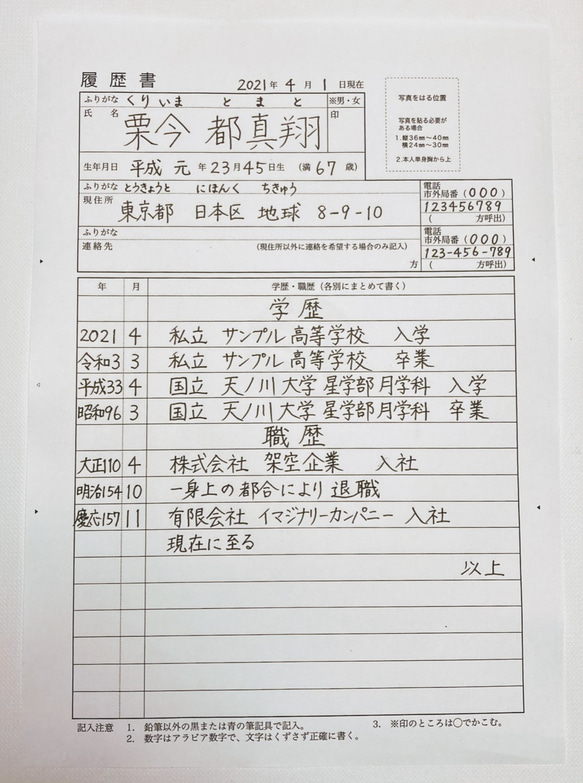 履歴書
2021年 4月 1日現在
ふりがな くり いま と ま と
※男・女
氏名 栗今 都真翔
印
生年月日 平成 元年23月45日生 (満 67 歳)
写真をはる位置
写真を貼る必要が
ある場合
1.縦36mm〜40mm
横24mm〜30mm
2.本人単身胸から上
ふりがな とうきょうと にほんく ちきゅう
現住所 東京都 日本区 地球 8-9-10
電話
市外局番(000)
123456789
( 方呼出)
ふりがな
連絡先 (現住所以外に連絡を希望する場合のみ記入)
方
電話
市外局番(000)
123-456-789
( 方呼出)
年 月 学歴・職歴(各別にまとめて書く)
学歴
2021 4 私立 サンプル高等学校 入学
令和3 3 私立 サンプル高等学校 卒業
平成33 4 国立 天ノ川大学 星学部月学科 入学
昭和96 3 国立 天ノ川大学 星学部月学科 卒業
職歴
大正110 4 株式会社 架空企業 入社
明治154 10 一身上の都合により退職
慶応157 11 有限会社 イマジナリーカンパニー 入社
現在に至る
以上
記入注意 1. 鉛筆以外の黒または青の筆記具で記入。 3. ※印のところは○でかこむ。
2. 数字はアラビア数字で、文字はくずさず正確に書く。